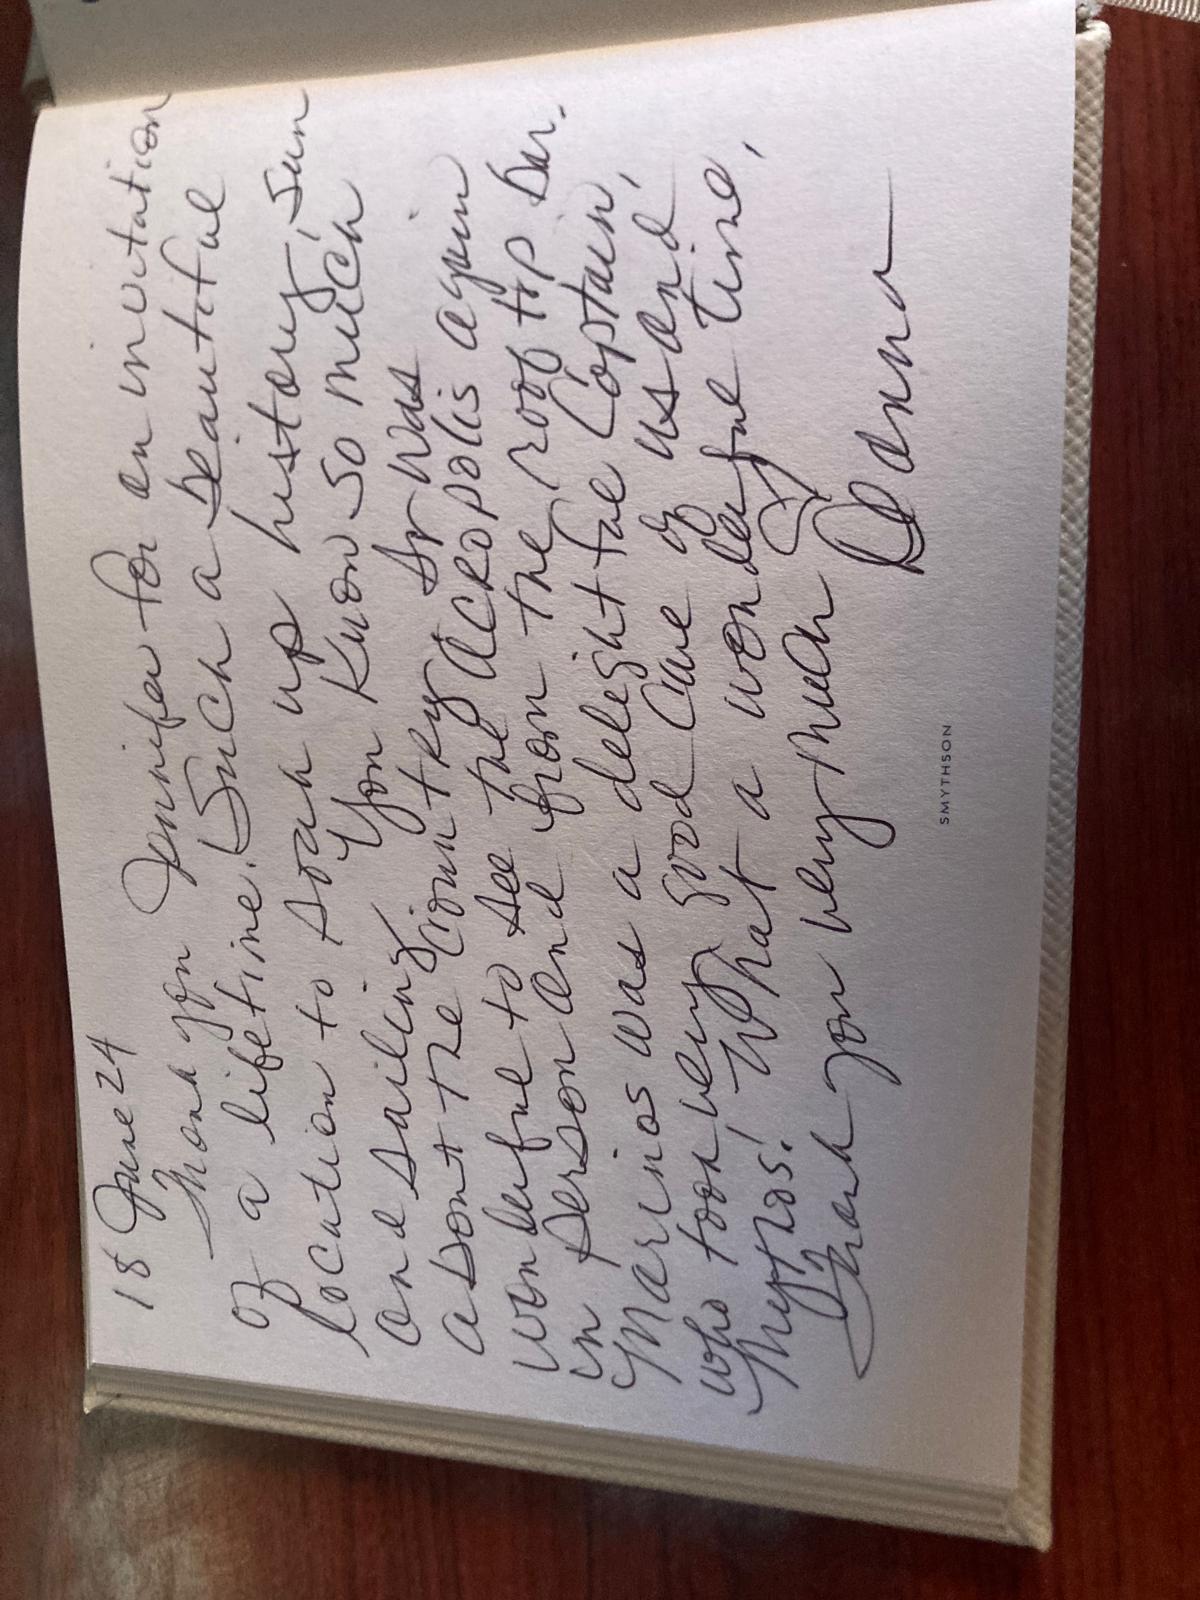 18 June 24
Thank you Jennifer for an invitation
of a lifetime. Such a beautiful
location to soak up history, sun
and sailing. You know so much
about the country. It was
wonderful to see the acropolis again
in person and from the roof top bar.
Marinos was a delightful Captain,
who took very good care of us and
Mythos! What a wonderful time,
Thank you very much
Deanna
SMYTHSON